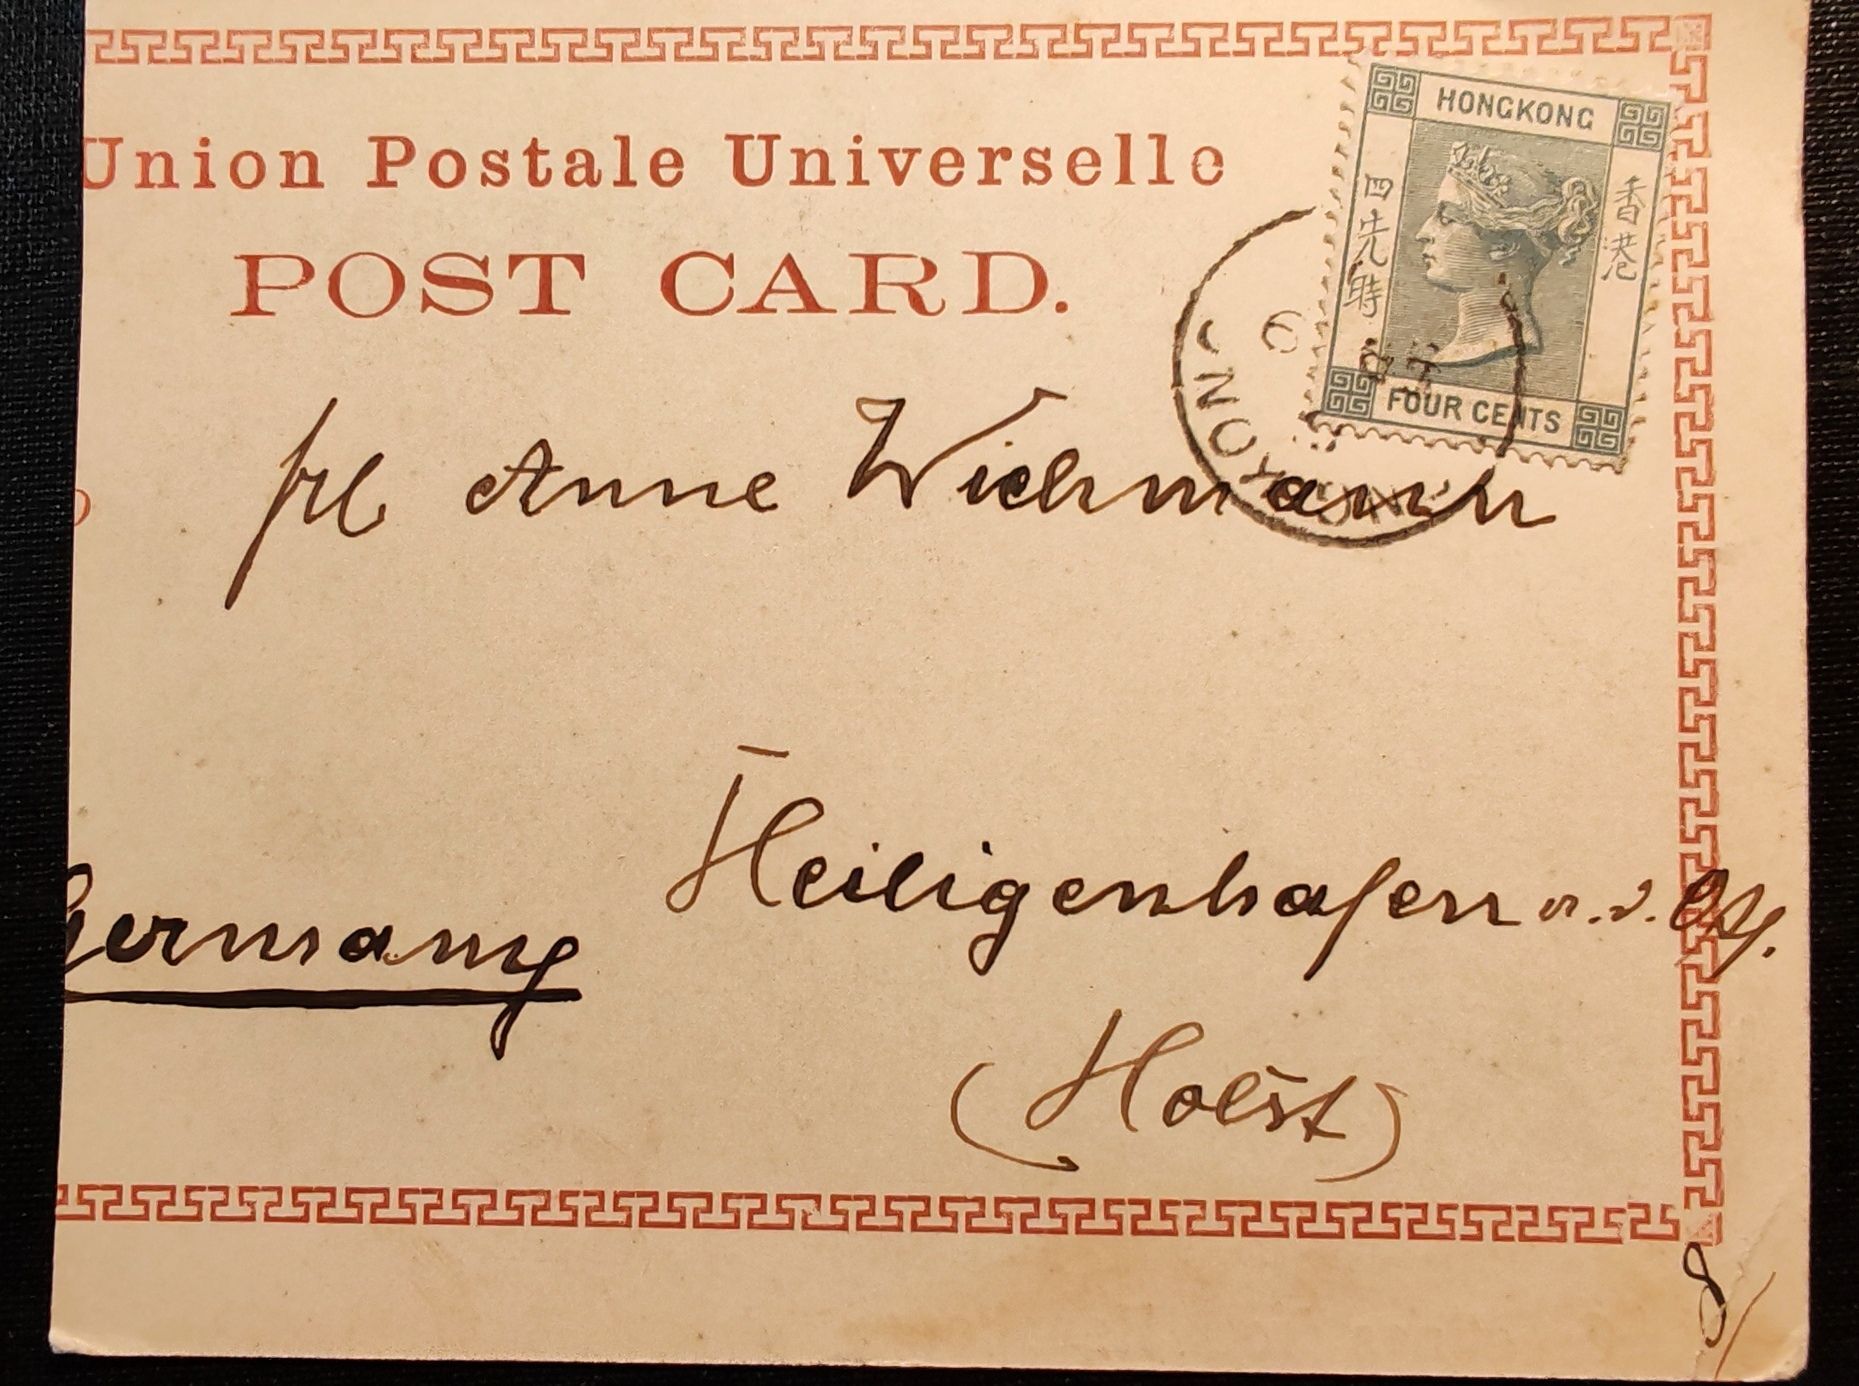 Union Postale Universelle
POST CARD.
HONGKONG
香港
四先時
FOUR CENTS
frl Anne Wichmann
Heiligenhafen a. d. Ost.
Germany
(Holst)
8/